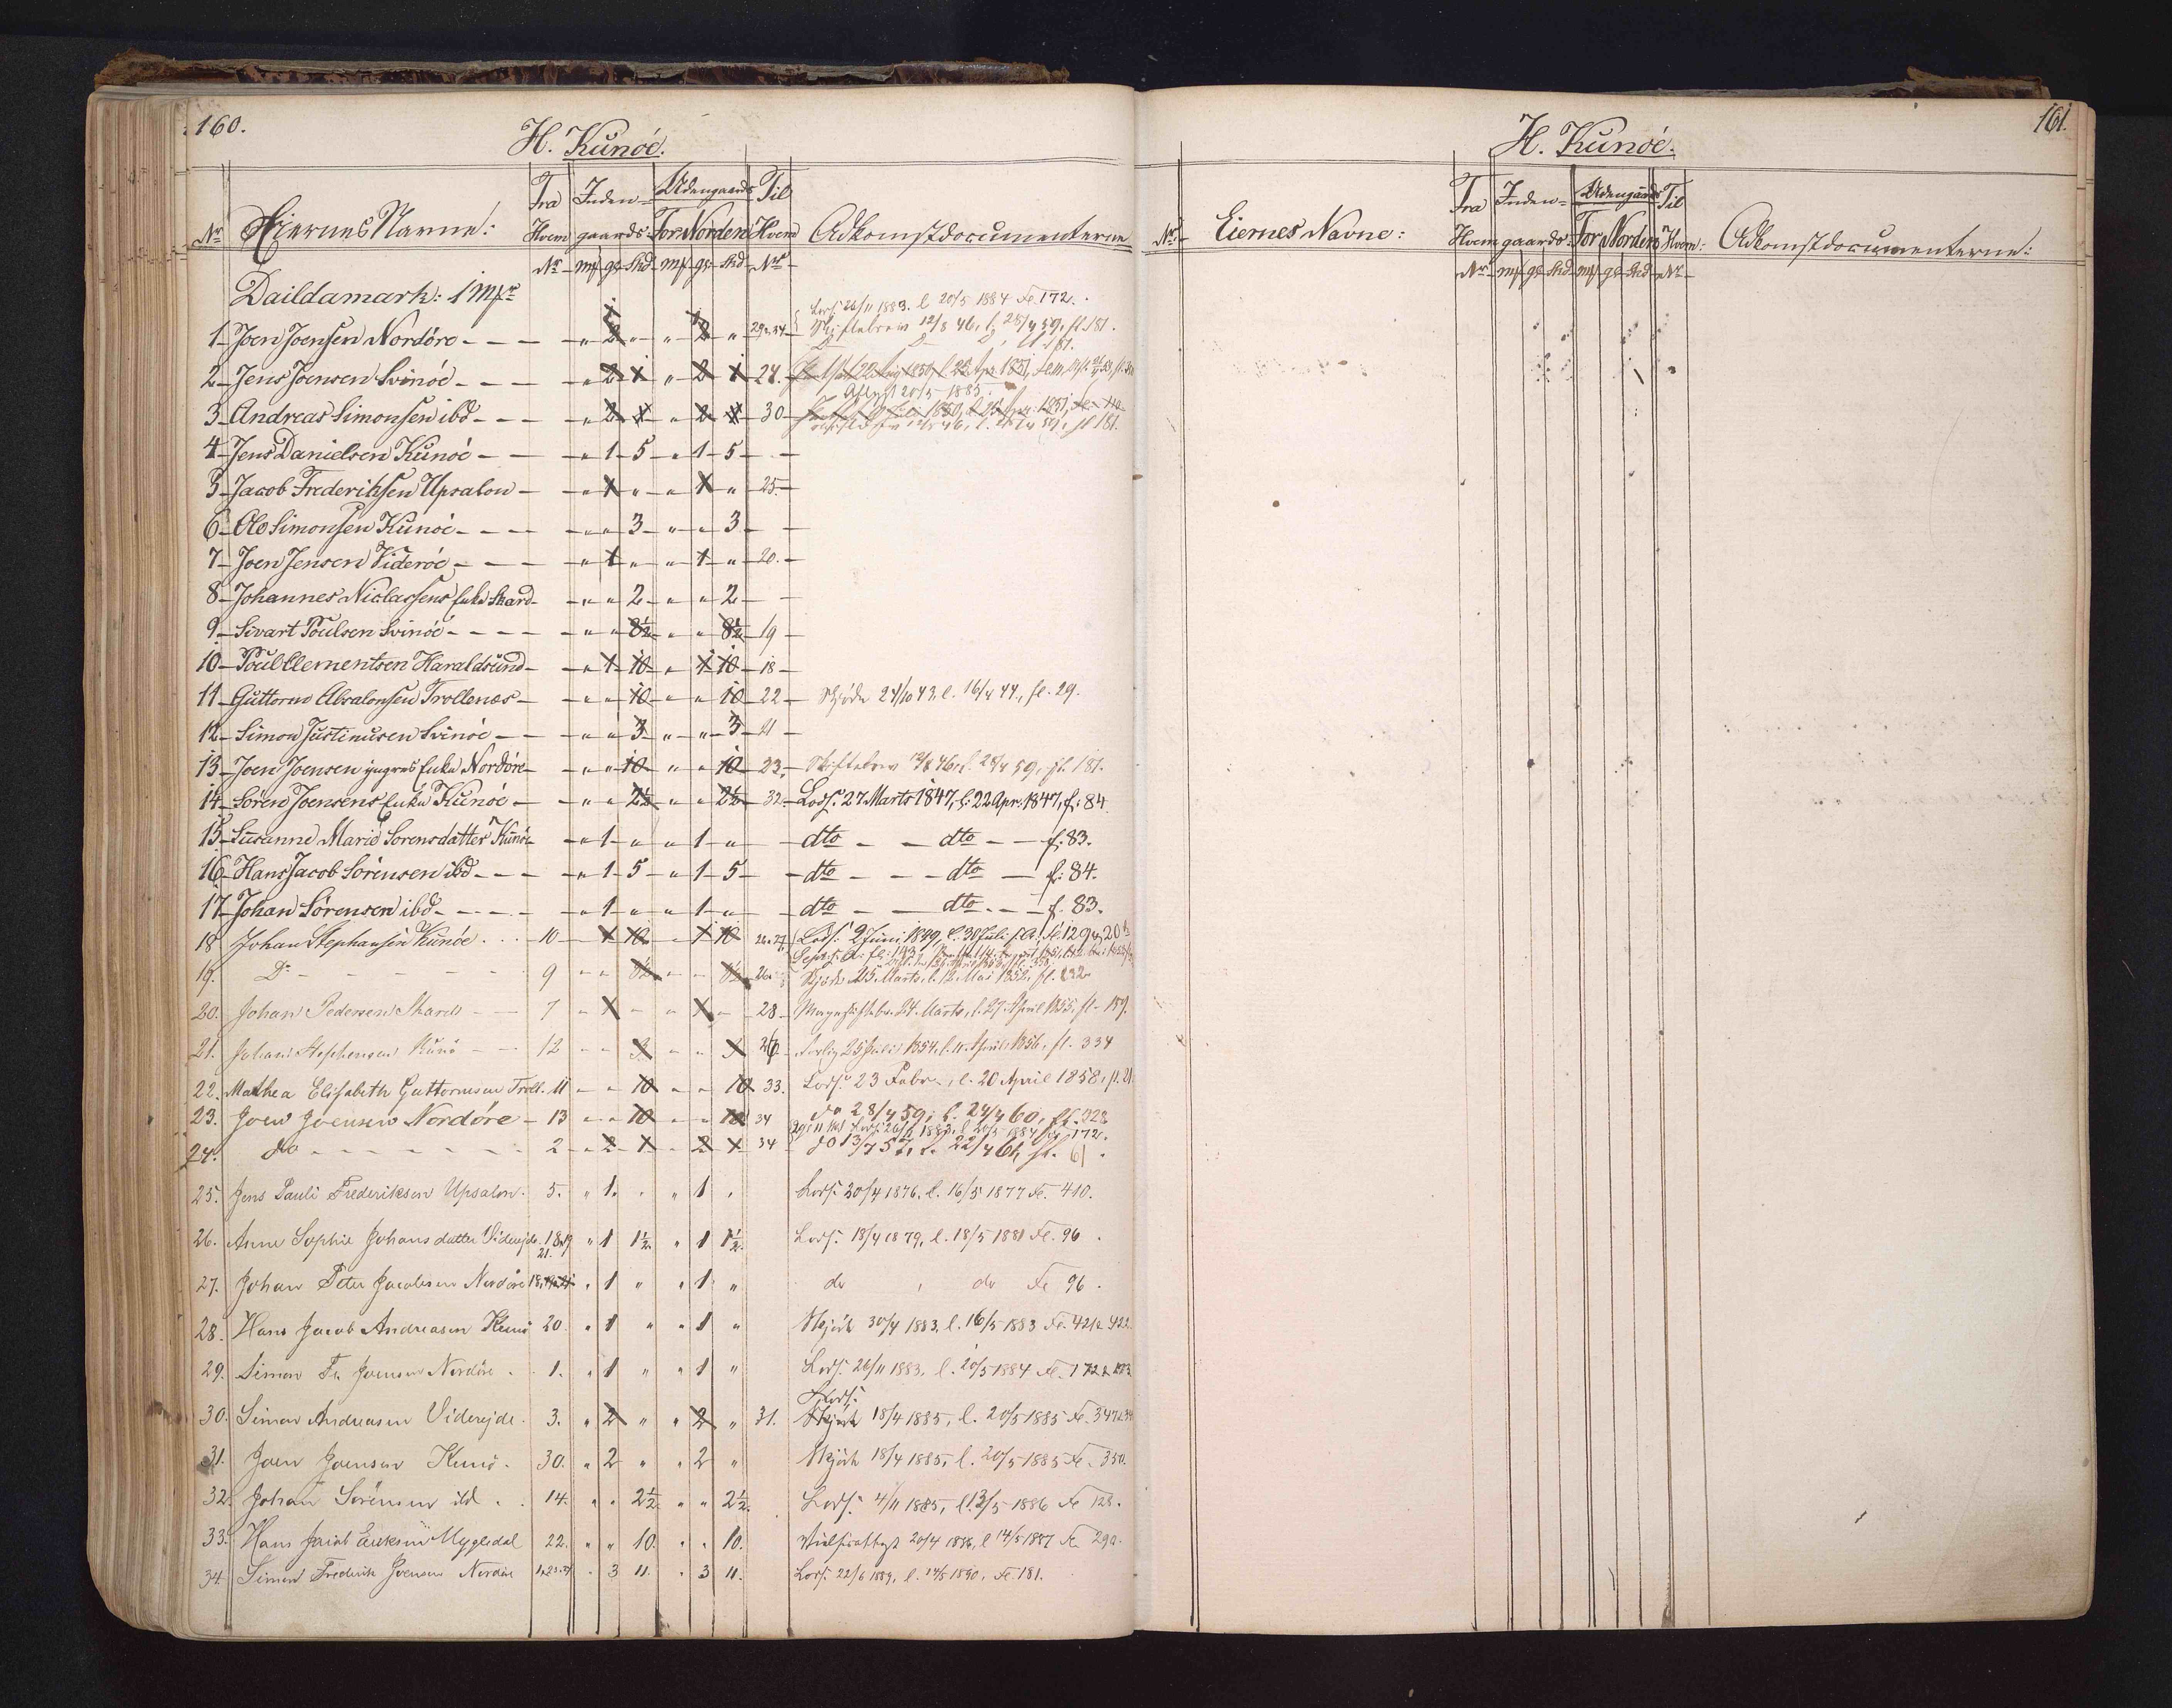 160.
H. Kunöe.
Nr Eiernes Navne: Fra Hvem Inden-gaards Udengaards For Norden Til Hvem Adkomstdocumenterne
Nr mk gl Skd mk gl Skd Nr
Daildamark: 1 Mk
Lods. 26/11 1883. l. 20/5 1884 Fl. 172.
1 Joen Joensen Nordöre - - - " 2 " " 2 " 29 & 34 Skiftebrev 12/8 46, l. 28/4 59, fl. 181.
2 Jens Joensen Svinöe - - - " 2 1 " 2 1 24.
Afkast 20/5 1885.
3 Andreas Simonsen ibd - - - " 2 " 2 30
4 Jens Danielsen Kunöe - - " 1 5 " 1 5 -
5 Jacob Frederiksen Upsalon - " 1 " " 1 " 25.
6 Ole Simonsen Kunöe - - - " " 3 " " 3 -
7 Joen Jensen Videröe - - - " 1 " " 1 " 20.
8 Johannes Niclassens Enke Skard - " " 2 " " 2 -
9 Sivart Poulsen Svinöe - - - - " " 8½ " " 8½ 19
10 Poul Clementsen Haraldsund - " 1 10 " 1 10 18
11 Guttorm Absalonsen Trollenæs - " " 10 " " 10 22 Skjöde 24/10 43, l. 16/4 44, fl. 29.
12 Simon Justinusen Svinöe - - " " 3 " " 3 21
13 Joen Joensen yngres Enke Nordöre - " " 10 " " 10 23. Skiftebrev 12/8 46, l. 28/4 59, fl. 181.
14 Sören Joensens Enke Kunöe - " " 2½ " " 2½ 32. Lods. 27 Marts 1847, l. 22 Apr. 1847, f: 84.
15 Susanne Marie Sorensdatter Kunöe " 1 " " 1 " dto - - dto - - f. 83.
16 Hans Jacob Sörensen ibd - - - " 1 5 " 1 5 dto - - - dto - f. 84.
17 Johan Sörensen ibd - - - - " 1 " " 1 " dto - - dto - - f. 83.
18 Johan Stephansen Kunöe . . . 10 - 1 10 - 1 10 Lods. 2 Juni 1849, l. 30 Juli s.A. Fl. 129 & 20
19. Do - - - - - - - 9 - - 8½ - - 8½ 26. Skjöde 25 Marts, l. 12. Mai 1852, fl. 232
20. Johan Pedersen Skard - - 7 - 1 - - 1 - 28 Mageskiftebr. 24. Marts, l. 27. April 1855, fl. 159.
21. Johan Stephansen Kunö - - 12 - - 3 - - 3 26 Forlig 25 Juli 1854, l. 11. April 1856, fl. 334
22. Mathea Elisabeth Guttormsen Troll. 11 - - 10 - - 10 33. Lods. 23 Febr., l. 20 April 1858, fl. 21.
23. Joen Joensen Nordöre - 13 - - 10 - - 10 34 do 28/4 59, l. 24/4 60, fl. 328
24. do - - - - - - - 2 - 2 1 - 2 1 34 do 13/7 57, l. 22/4 61, fl. 61.
25. Jens Pauli Frederiksen Upsalon. 5. " 1. " " 1 " Lods. 20/4 1876, l. 16/5 1877 Fl. 410.
26. Anne Sophie Johansdatter Viderejde. 18, 19 21. " 1 1½ " 1 1½ Lods. 18/4 1879, l. 18/5 1881 Fl. 96.
27. Johan Peter Jacobsen Nordöre 18, " 1 " " 1 " do , do Fl 96.
28. Hans Jacob Andreasen Kunö 20. " 1 " " 1 " Skjöde 30/4 1883, l. 16/5 1883 Fl. 421 & 422.
29. Simon Fr. Joensen Nordöre . 1. " 1 " " 1 " Lods. 26/11 1883, l. 20/5 1884 Fl. 172 & 173
Lods.
30. Simon Andreasen Viderejde. 3. " 2 " " 2 " 31. Skjöde 18/4 1885, l. 20/5 1885 Fl. 347
31. Joen Joensen Kunö. 30. " 2 " " 2 " Skjöde 18/4 1885, l. 20/5 1885 Fl. 350.
32. Johan Sörensen ibd . . 14. " " 2½ " " 2½. Lods. 4/11 1885, l. 13/5 1886 Fl 128.
33. Hans Jacob Eriksen Mygledal 22. " " 10. " " 10. 20/4 1886, l 14/5 1887 Fl 290.
34. Simon Frederik Joensen Nordöre 1, 23, 24 " 3 11. " 3 11. Lods. 22/6 1889, l. 14/5 1890, Fl. 181.
161.
H. Kunöe.
Nr. Eiernes Navne: Fra Hvem Inden-gaards Udengaards For Norden Til Hvem: Adkomstdocumenterne:
Nr mk gl Skd mk gl Skd Nr